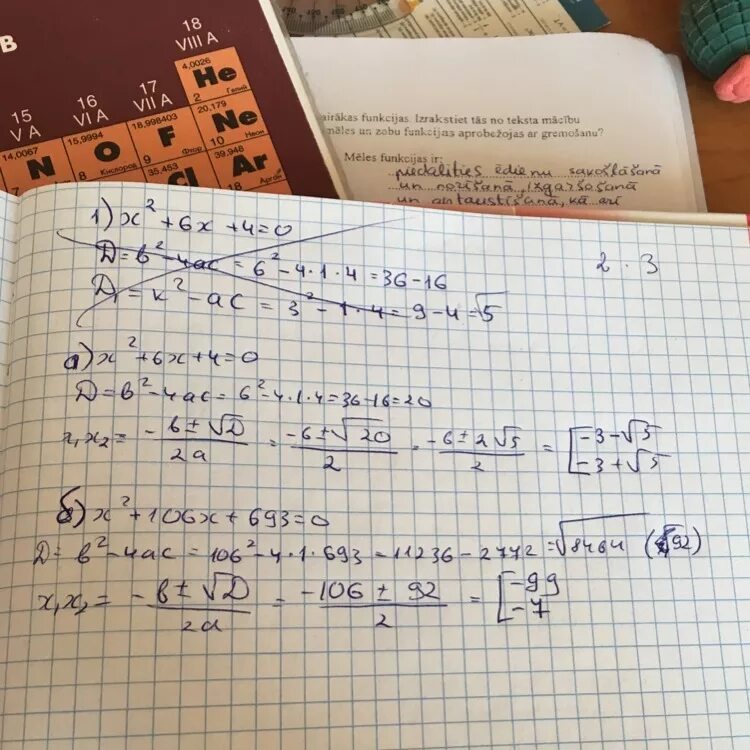 В
18
VIII A
17
VII A
16
VI A
15
V A
4,0026
He
2 Гелий
20,179
Ne
10 Неон
18,998403
F
9 Фтор
15,9994
O
8 Кислород
14,0067
N
35,453
Cl
39,948
Ar
18 Аргон
airākas funkcijas. Izrakstiet tās no teksta mācību
mēles un zobu funkcijas aprobežojas ar gremošanu?
Mēles funkcijas ir:
piedalīties ēdienu sakošļāšanā
un norīšanā, izgaršošanā
un antaustīšanā, kā arī
1) x² + 6x + 4 = 0
D = b² - 4ac = 6² - 4·1·4 = 36 - 16
D₁ = k² - ac = 3² - 1·4 = 9 - 4 = √5
2 · 3
а) x² + 6x + 4 = 0
D = b² - 4ac = 6² - 4·1·4 = 36 - 16 = 20
x₁x₂ = -b ± √D / 2a = -6 ± √20 / 2 = -6 ± 2√5 / 2 = [ -3 - √5
-3 + √5
б) x² + 106x + 693 = 0
D = b² - 4ac = 106² - 4·1·693 = 11236 - 2772 = √8464 (92)
x₁x₂ = -b ± √D / 2a = -106 ± 92 / 2 = [ -99
-7